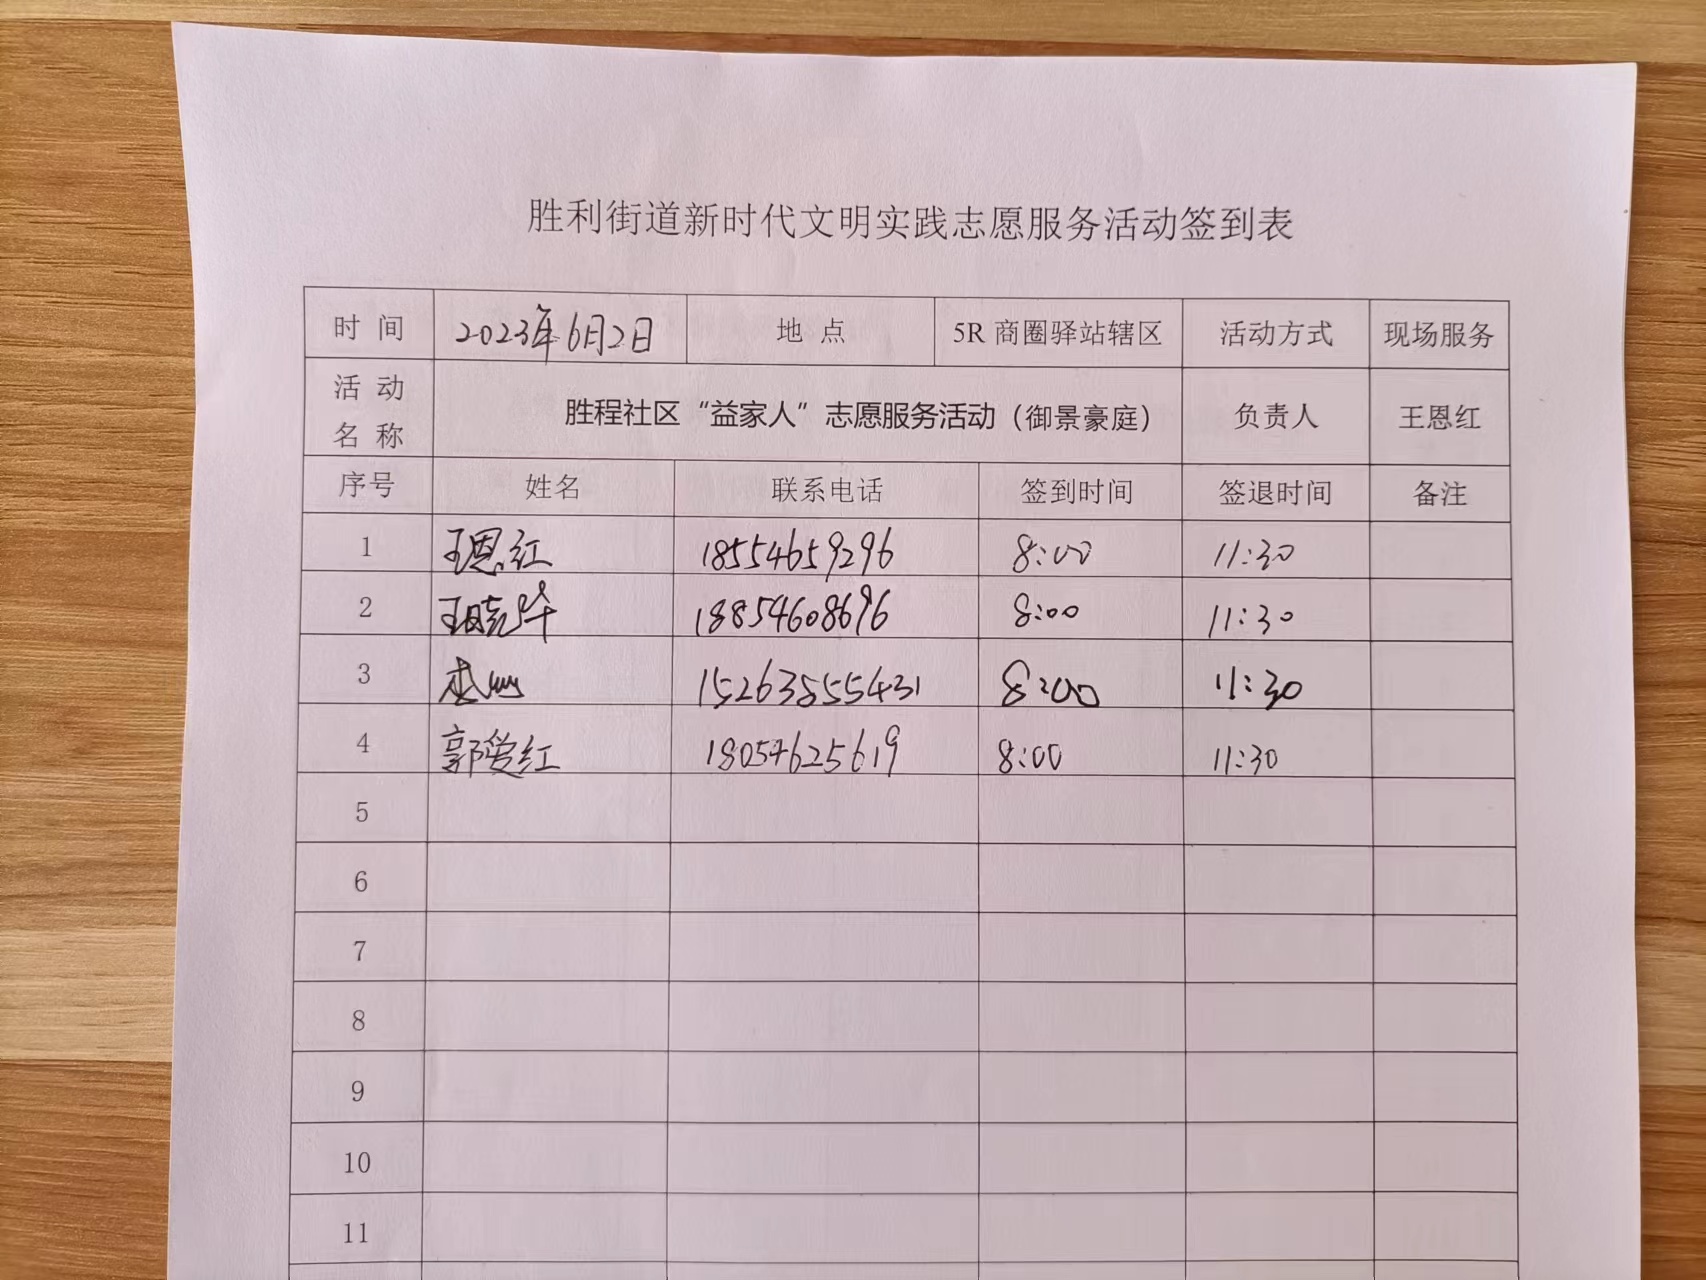 胜利街道新时代文明实践志愿服务活动签到表
时 间 2023年6月2日 地 点 5R 商圈驿站辖区 活动方式 现场服务
活 动 名 称 胜程社区“益家人”志愿服务活动（御景豪庭） 负责人 王恩红
序号 姓名 联系电话 签到时间 签退时间 备注
1 王恩红 18554659296 8:00 11:30
2 王晓华 18854608696 8:00 11:30
3 15263855431 8:00 11:30
4 郭爱红 18054625619 8:00 11:30
5
6
7
8
9
10
11